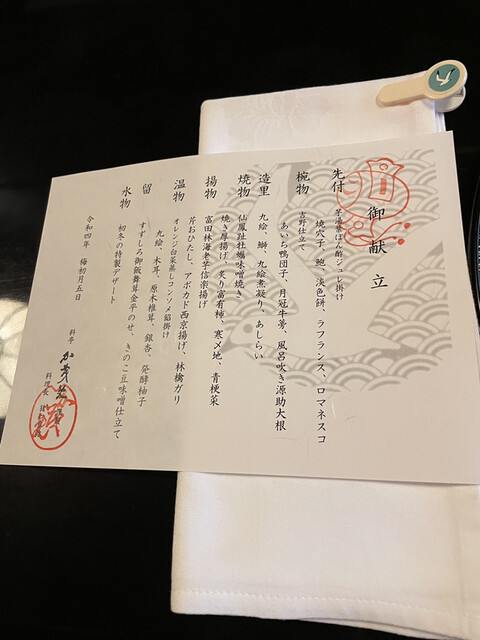 御献立
先付
芋湯葉ぽん酢ジュレ掛け
焼穴子、鮑、淡色餅、ラフランス、ロマネスコ
椀物
吉野仕立て
あいち鴨団子、月冠牛蒡、風呂吹き源助大根
造里
九絵、鰤、九絵煮凝り、あしらい
焼物
仙鳳趾牡蠣味噌焼き
焼き厚揚げ、炙り富有柿、寒〆地、青梗菜
揚物
富田林海老芋信楽揚げ
芹おひたし、アボカド西京揚げ、林檎ガリ
温物
オレンジ白菜蒸しコンソメ餡掛け
九絵、木耳、原木椎茸、銀杏、発酵柚子
留
すずしろ御飯舞茸金平のせ、きのこ豆味噌仕立て
水物
初冬の特製デザート
令和四年 梅初月五日
料亭
料理長